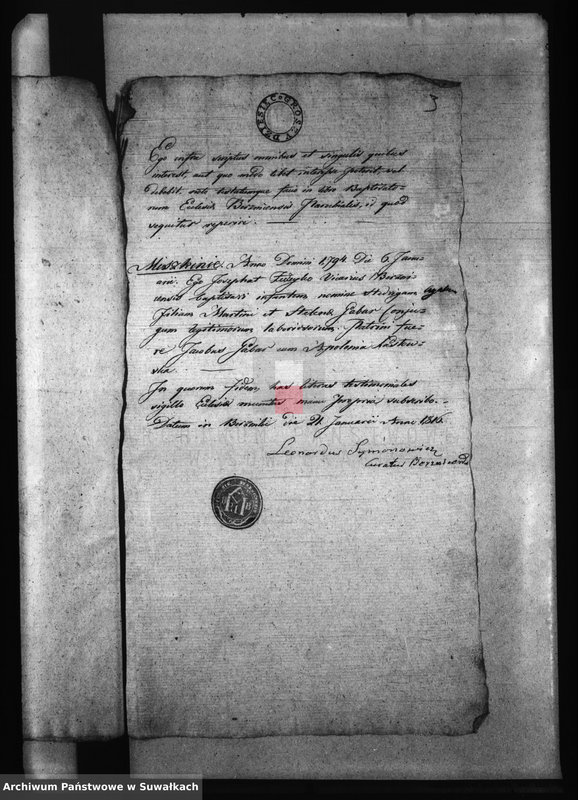 DZIESIĘĆ GROSZY
Ego infra scriptus omnibus et singulis quibus
interest, aut quo modo libet interesse poterit, vel
debebit, notum testatumque facio in libro Baptisato-
rum Ecclesiæ Berzniensis Parochialis, id quod
sequitur reperiri.
Moszkinie. Anno Domini 1794 Die 6 Janu-
arii. Ego Josephat Vicarius Berzni-
censis baptisavi infantem nomine
filiam Martini et Gabar Conju-
gum legitimorum laboriosorum. Patrini fue-
re Jacobus Gabar cum Apolonia
ska.
In quorum fidem has literas testimoniales
sigillo Ecclesiæ munitas manu propria subscribo.
Datum in die 21 Januarii Anno
Leonardus Symonowicz
Curatus
Archiwum Państwowe w Suwałkach